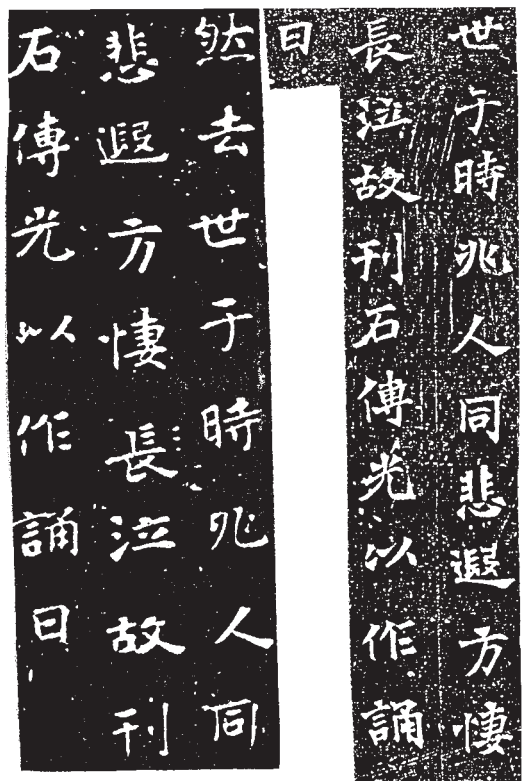 世于時兆人同悲遐方悽
長泣故刊石傳光以作誦
曰
然去世于時兆人同
悲遐方悽長泣故刊
石傳光以作誦曰